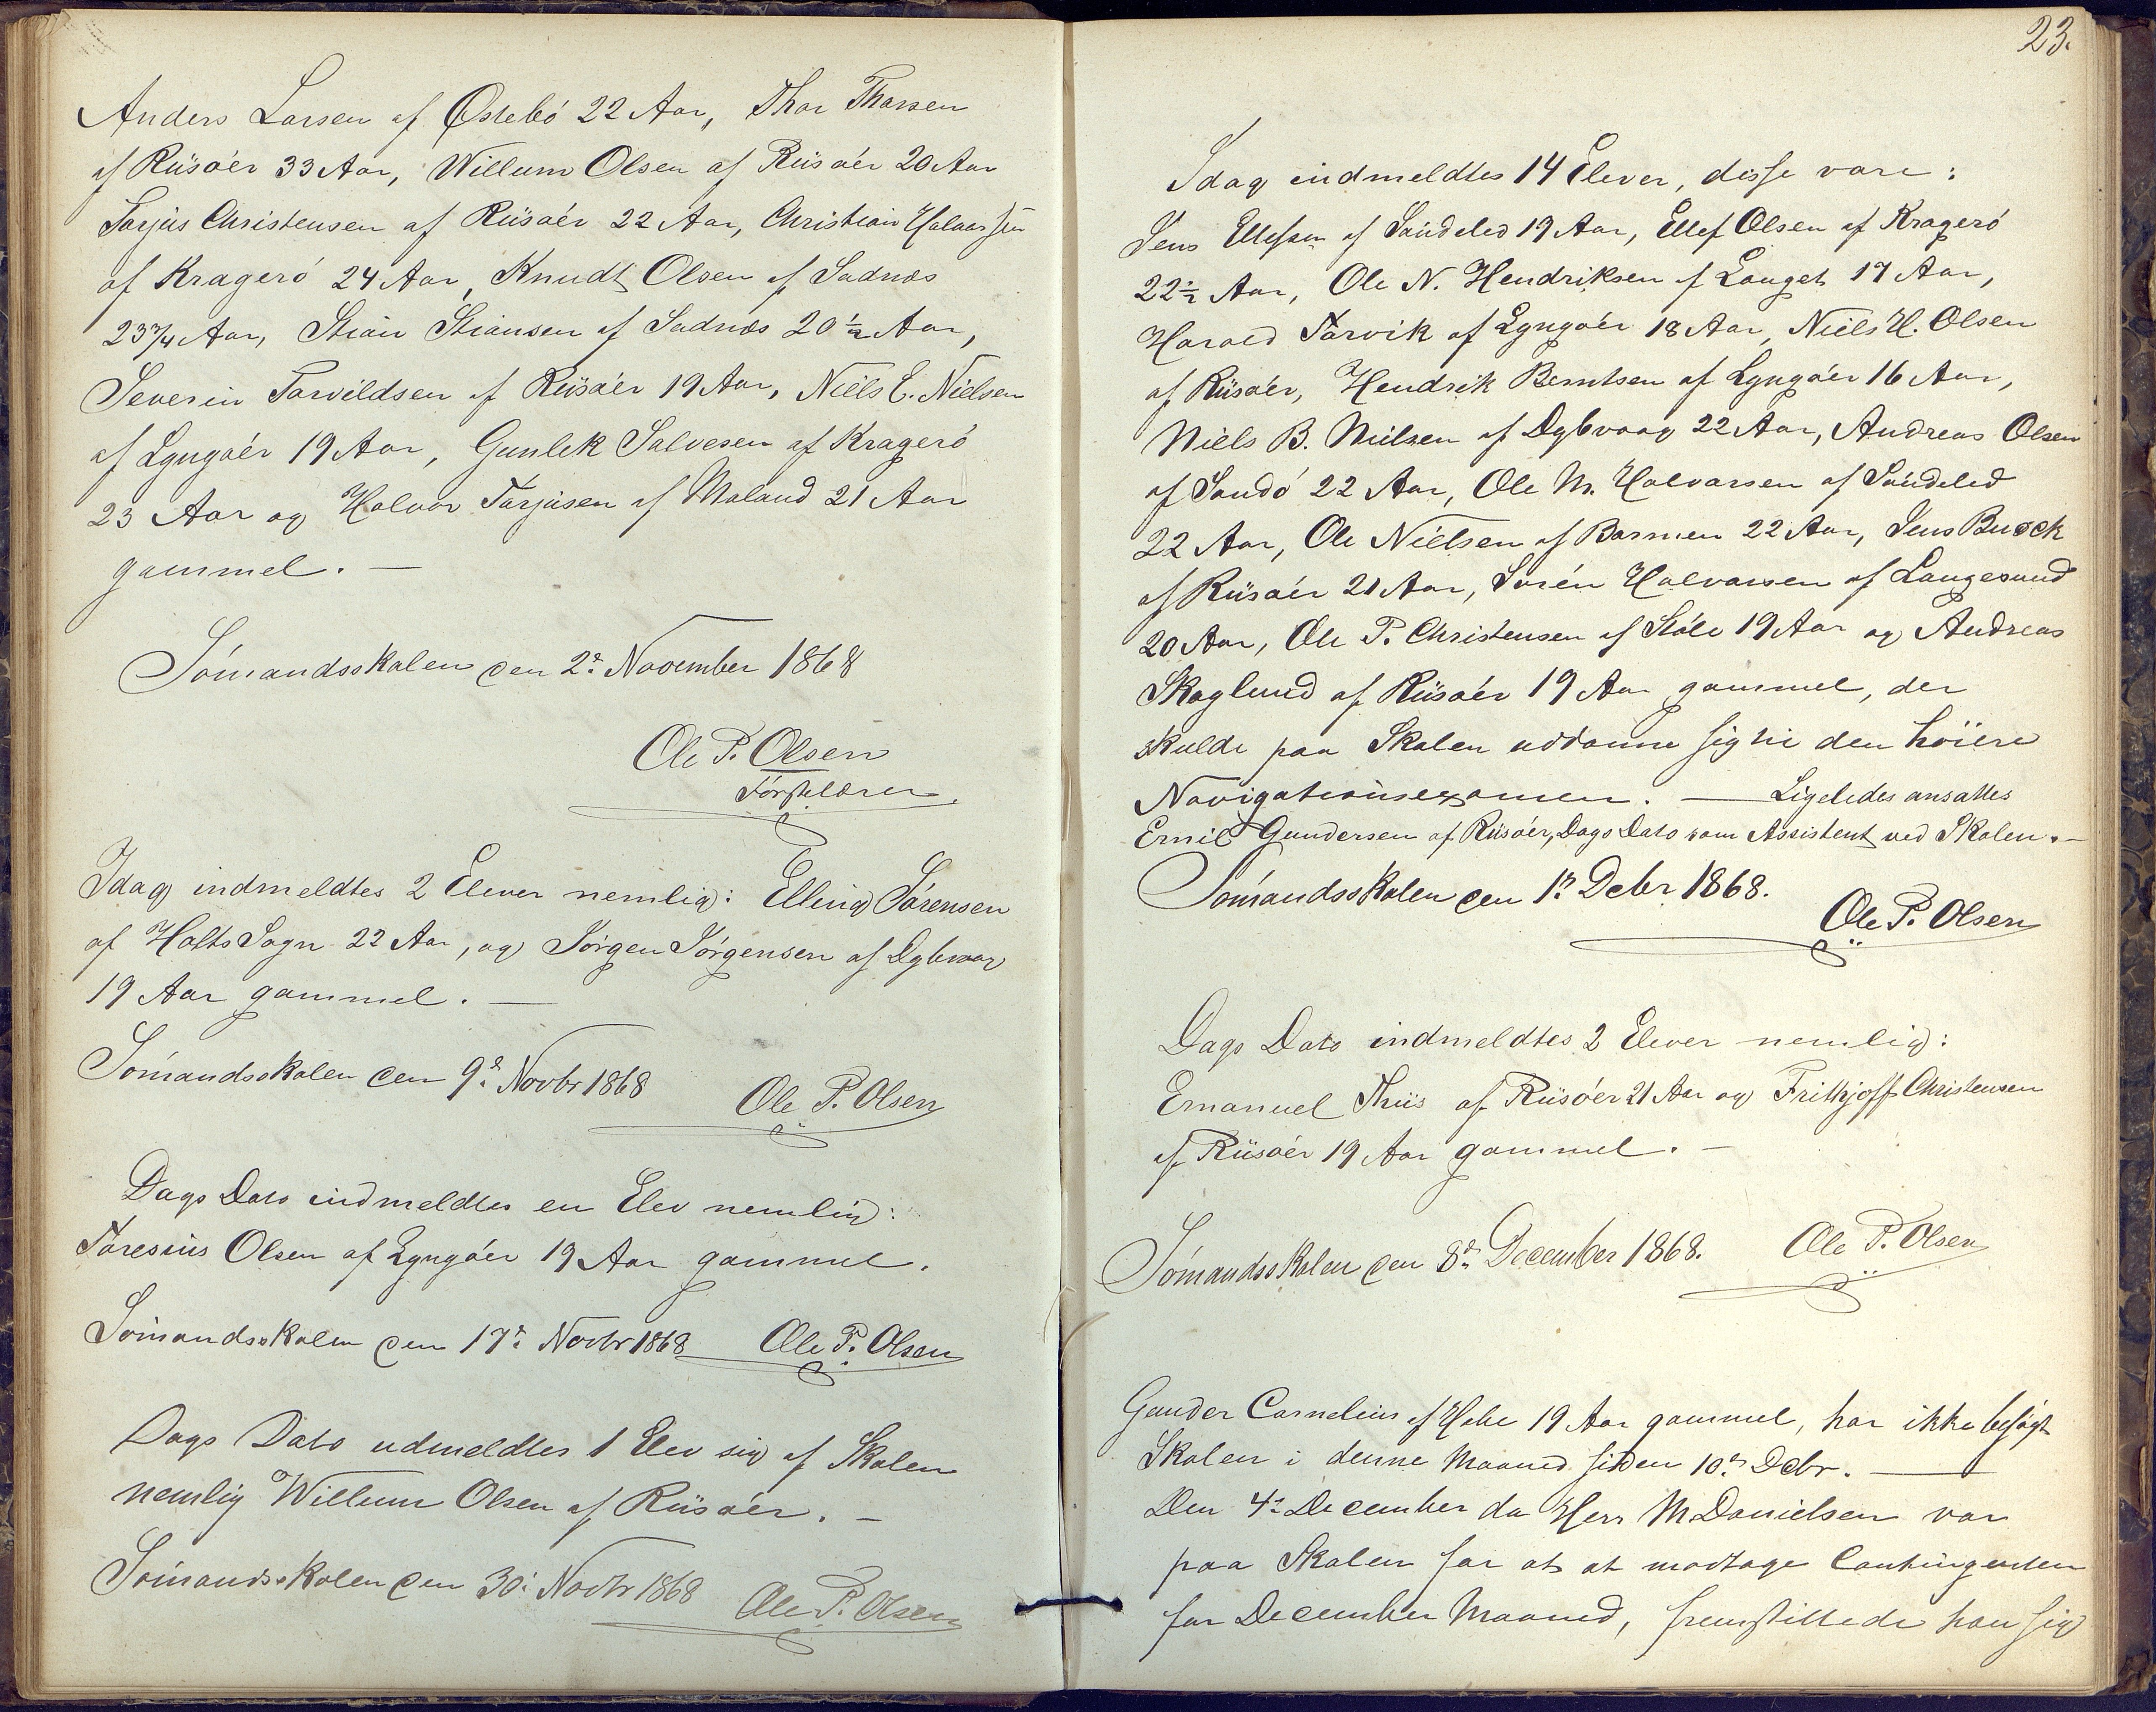 Anders Larsen af Østebö 22 Aar, Thor Thorsen
af Riisöer 33 Aar, Willum Olsen af Riisöer 20 Aar
Torjus Christensen af Riisöer 22 Aar, Christian Halvorsen
af Kragerö 24 Aar, Knudt Olsen af Sadnæs
23 3/4 Aar, Stian Stiansen af Sadnæs 20 1/2 Aar,
Severin Torvildsen af Riisöer 19 Aar, Niels E. Nielsen
af Lyngöer 19 Aar, Gunlek Salvesen af Kragerö
23 Aar og Halvor Torjusen af Moland 21 Aar
gammel. —
Sömandsskolen den 2d November 1868
Ole P. Olsen
Förstelærer.
Idag indmeldtes 2 Elever nemlig: Elling Sörensen
af Holts Sogn 22 Aar, og Jörgen Jörgensen af Dybvaag
19 Aar gammel. —
Sömandsskolen den 9d Novbr 1868 Ole P. Olsen
Dags Dato indmeldtes en Elev nemlig:
Toresius Olsen af Lyngöer 19 Aar gammel.
Sömandsskolen den 17d Novbr 1868 Ole P. Olsen
Dags Dato udmeldtes 1 Elev sig af Skolen
nemlig Willum Olsen af Riisöer. —
Sömandsskolen den 30d Novbr 1868 Ole P. Olsen
23.
Idag indmeldtes 14 Elever, disse vare:
Jens Ellefsen af Söndeled 19 Aar, Ellef Olsen af Kragerö
22 1/2 Aar, Ole N. Hendriksen af Langet 17 Aar,
Harald Torvik af Lyngöer 18 Aar, Niels H. Olsen
af Riisöer, Hendrik Berntsen af Lyngöer 16 Aar,
Niels B. Nielsen af Dybvaag 22 Aar, Andreas Olsen
af Sandö 22 Aar, Ole M. Halvorsen af Söndeled
22 Aar, Ole Nielsen af Barmen 22 Aar, Jens Buck
af Riisöer 21 Aar, Sören Halvorsen af Langesund
20 Aar, Ole P. Christensen af Stöle 19 Aar og Andreas
Skoglund af Riisöer 19 Aar gammel, der
skulde paa Skolen uddanne sig til den höiere
Navigationsexamen. — Ligeledes ansattes
Emil Gundersen af Riisöer, Dags Dato som Assistent ved Skolen. —
Sömandsskolen den 1ste Debr 1868.
Ole P. Olsen
Dags Dato indmeldtes 2 Elever nemlig:
Emanuel Thiis af Riisöer 21 Aar og Frithjoff Christensen
af Riisöer 19 Aar gammel. —
Sömandsskolen den 8de December 1868. Ole P. Olsen
Gunder Cornelius af 19 Aar gammel, har ikke besögt
Skolen i denne Maaned siden 10de Debr. —
Den 4de December da Herr M Danielsen var
paa Skolen for at at modtage Contingenten
for December Maaned, fremstillede han sig